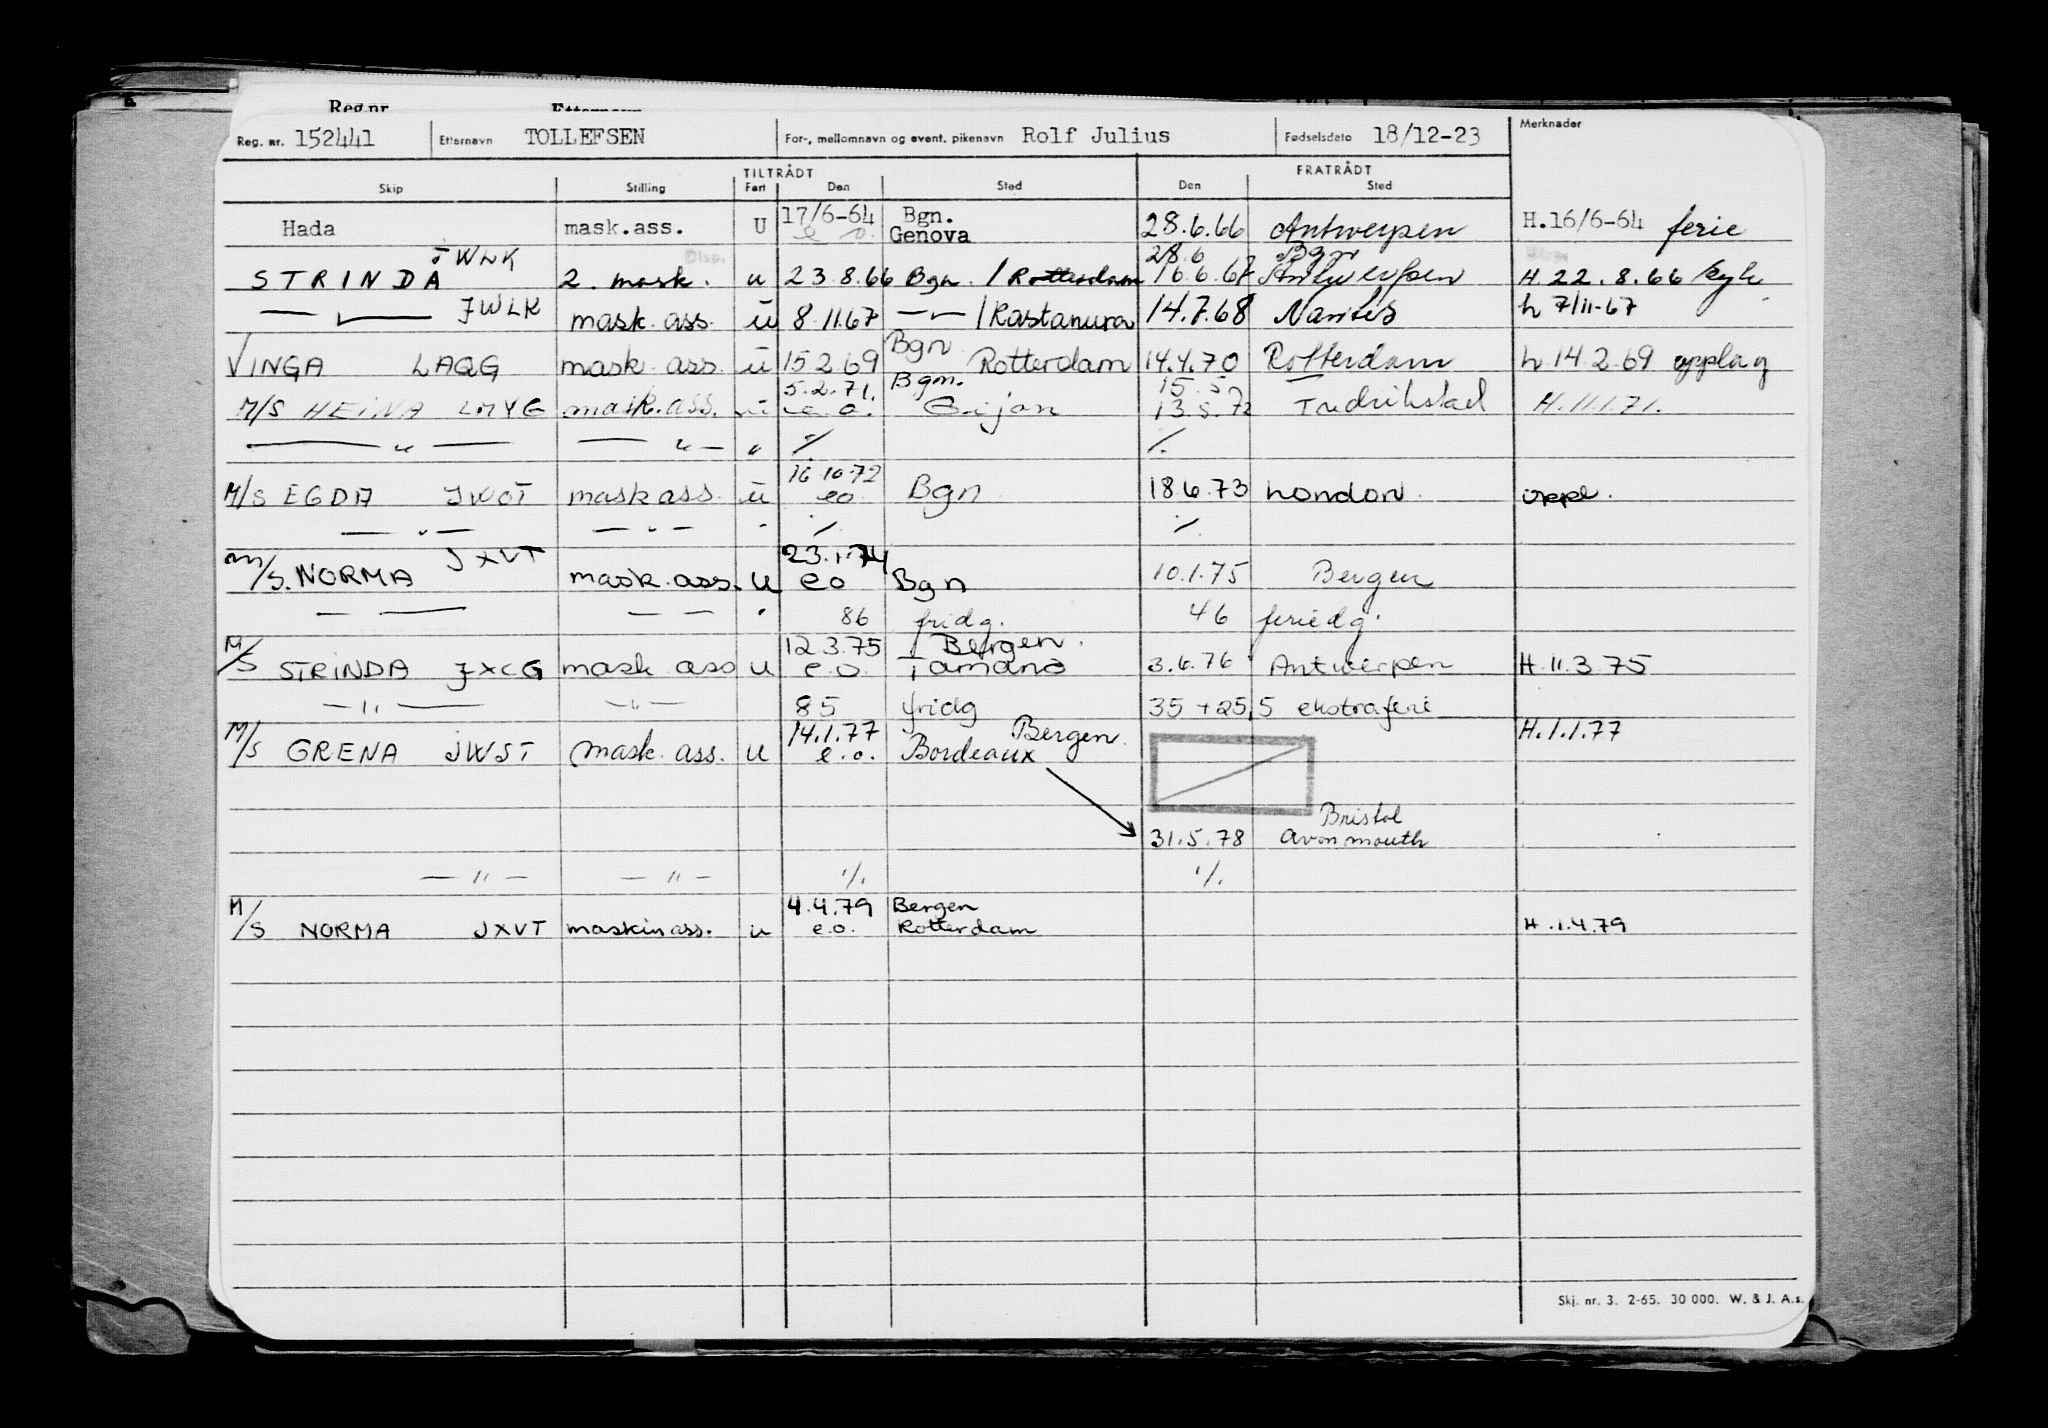 Reg.nr
Reg. nr. 152441 Etternavn TOLLEFSEN For-, mellomnavn og event. pikenavn Rolf Julius Fødselsdato 18/12-23 Merknader
TILTRÅDT FRATRÅDT
Skip Stilling Fart Den Sted Den Sted
17/6-64 Bgn.
Hada mask.ass. U e o. Genova 28.6.66 Antwerpen H.16/6-64 ferie
JWLK Disp. 28.6 Bgn
STRINDA 2. mask. u 23.8.66 Bgn. / Rotterdam 16.6.67 Antwerpen H.22.8.66
— " — JWLK mask. ass. ū 8.11.67 — " — / Rastanura 14.7.68 Nantes h 7/11-67
Bgn
VINGA LAQG mask. ass. ū 15 2 69 Rotterdam 14.4.70 Rotterdam h. 14 2.69 opplag
5.2.71. Bgn. 15.5
M/S HEINA LMYG mask. ass. ū e. o. Gijon 13.5.72 Fredrikstad H.11.1.71.
— " — — " — " ./. ./.
16 10 72
M/S EGDA JWOT mask ass. ū eo Bgn 18.6.73 London. oppl.
— " — — " — " ./. ./.
23.1.74
M/S. NORMA JXVT mask. ass. u eo Bgn 10.1.75 Bergen
— — — — " 86 fridg. 46 feriedg.
12.3.75 Bergen.
M/S STRINDA JXCG mask ass u e.o. Tamano 3.6.76 Antwerpen H.11.3.75
— " — — " — 85 fridg 35 + 25,5 ekstraferie
14.1.77 Bergen. H.1.1.77
M/S GRENA JWST mask. ass. u e.o. Bordeaux
Bristol
31.5.78 Avonmouth
— " — — " — ./. ./.
4.4.79 Bergen
M/S NORMA JXVT maskinass. u e.o. Rotterdam H.1.4.79
Skj. nr. 3. 2-65. 30 000. W. & J. A.s.